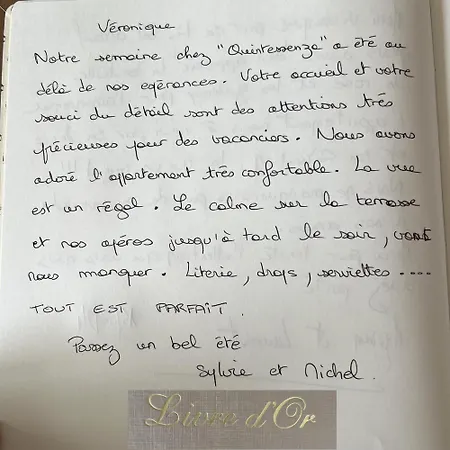 Véronique
Notre semaine chez "Quintessenza" a été au
délà de nos espérances. Votre accueil et votre
souci du détail sont des attentions très
précieuses pour des vacanciers. Nous avons
adoré l'appartement très confortable. La vue
est un régal. Le calme sur la terrasse
et nos apéros jusqu'à tard le soir, vont
nous manquer. Literie, draps, serviettes....
TOUT EST PARFAIT.
Passez un bel été
Sylvie et Michel.
Livre d'Or